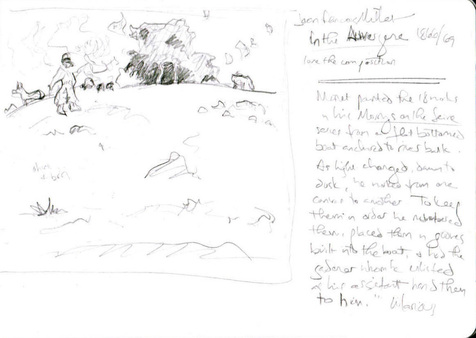 Jean Francois Millet
In the Auvergne 1866/69
love the composition
Monet painted the 18 works
in his Mornings on the Seine
series from a flat bottomed
boat anchored to river bank.
As light changed, dawn to
dusk, he moved from one
canvas to another. To keep
them in order he numbered
them, placed them in grooves
built into the boat, & had the
gardener whom he enlisted
as his assistant hand them
to him."